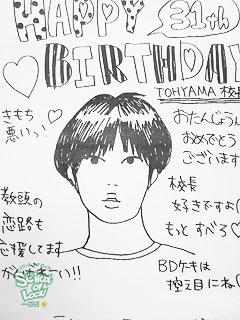 HAPPY 31th
BIRTHDAY
TOHYAMA 校長
きもち
悪いっ!
おたんじょうび
おめでとう
ございます
教頭の
恋路も
応援してます
からねーい!!
校長
好きですよ♡
もっとすべろ♡
BDケーキは
控え目にね♡
School of Lock!